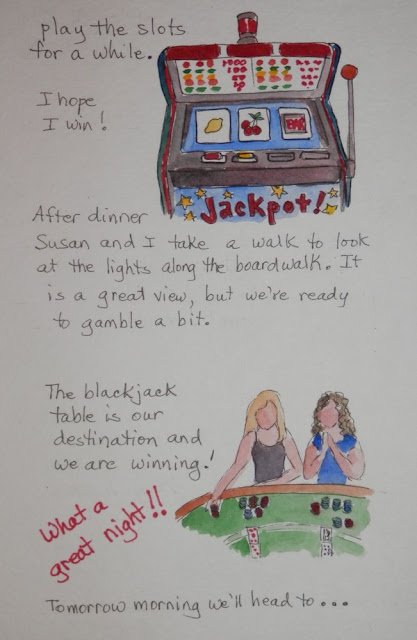 play the slots
for a while.
I hope
I win!
BAR
Jackpot!
After dinner
Susan and I take a walk to look
at the lights along the boardwalk. It
is a great view, but we're ready
to gamble a bit.
The blackjack
table is our
destination and
we are winning!
What a
great night!!
Tomorrow morning we'll head to...